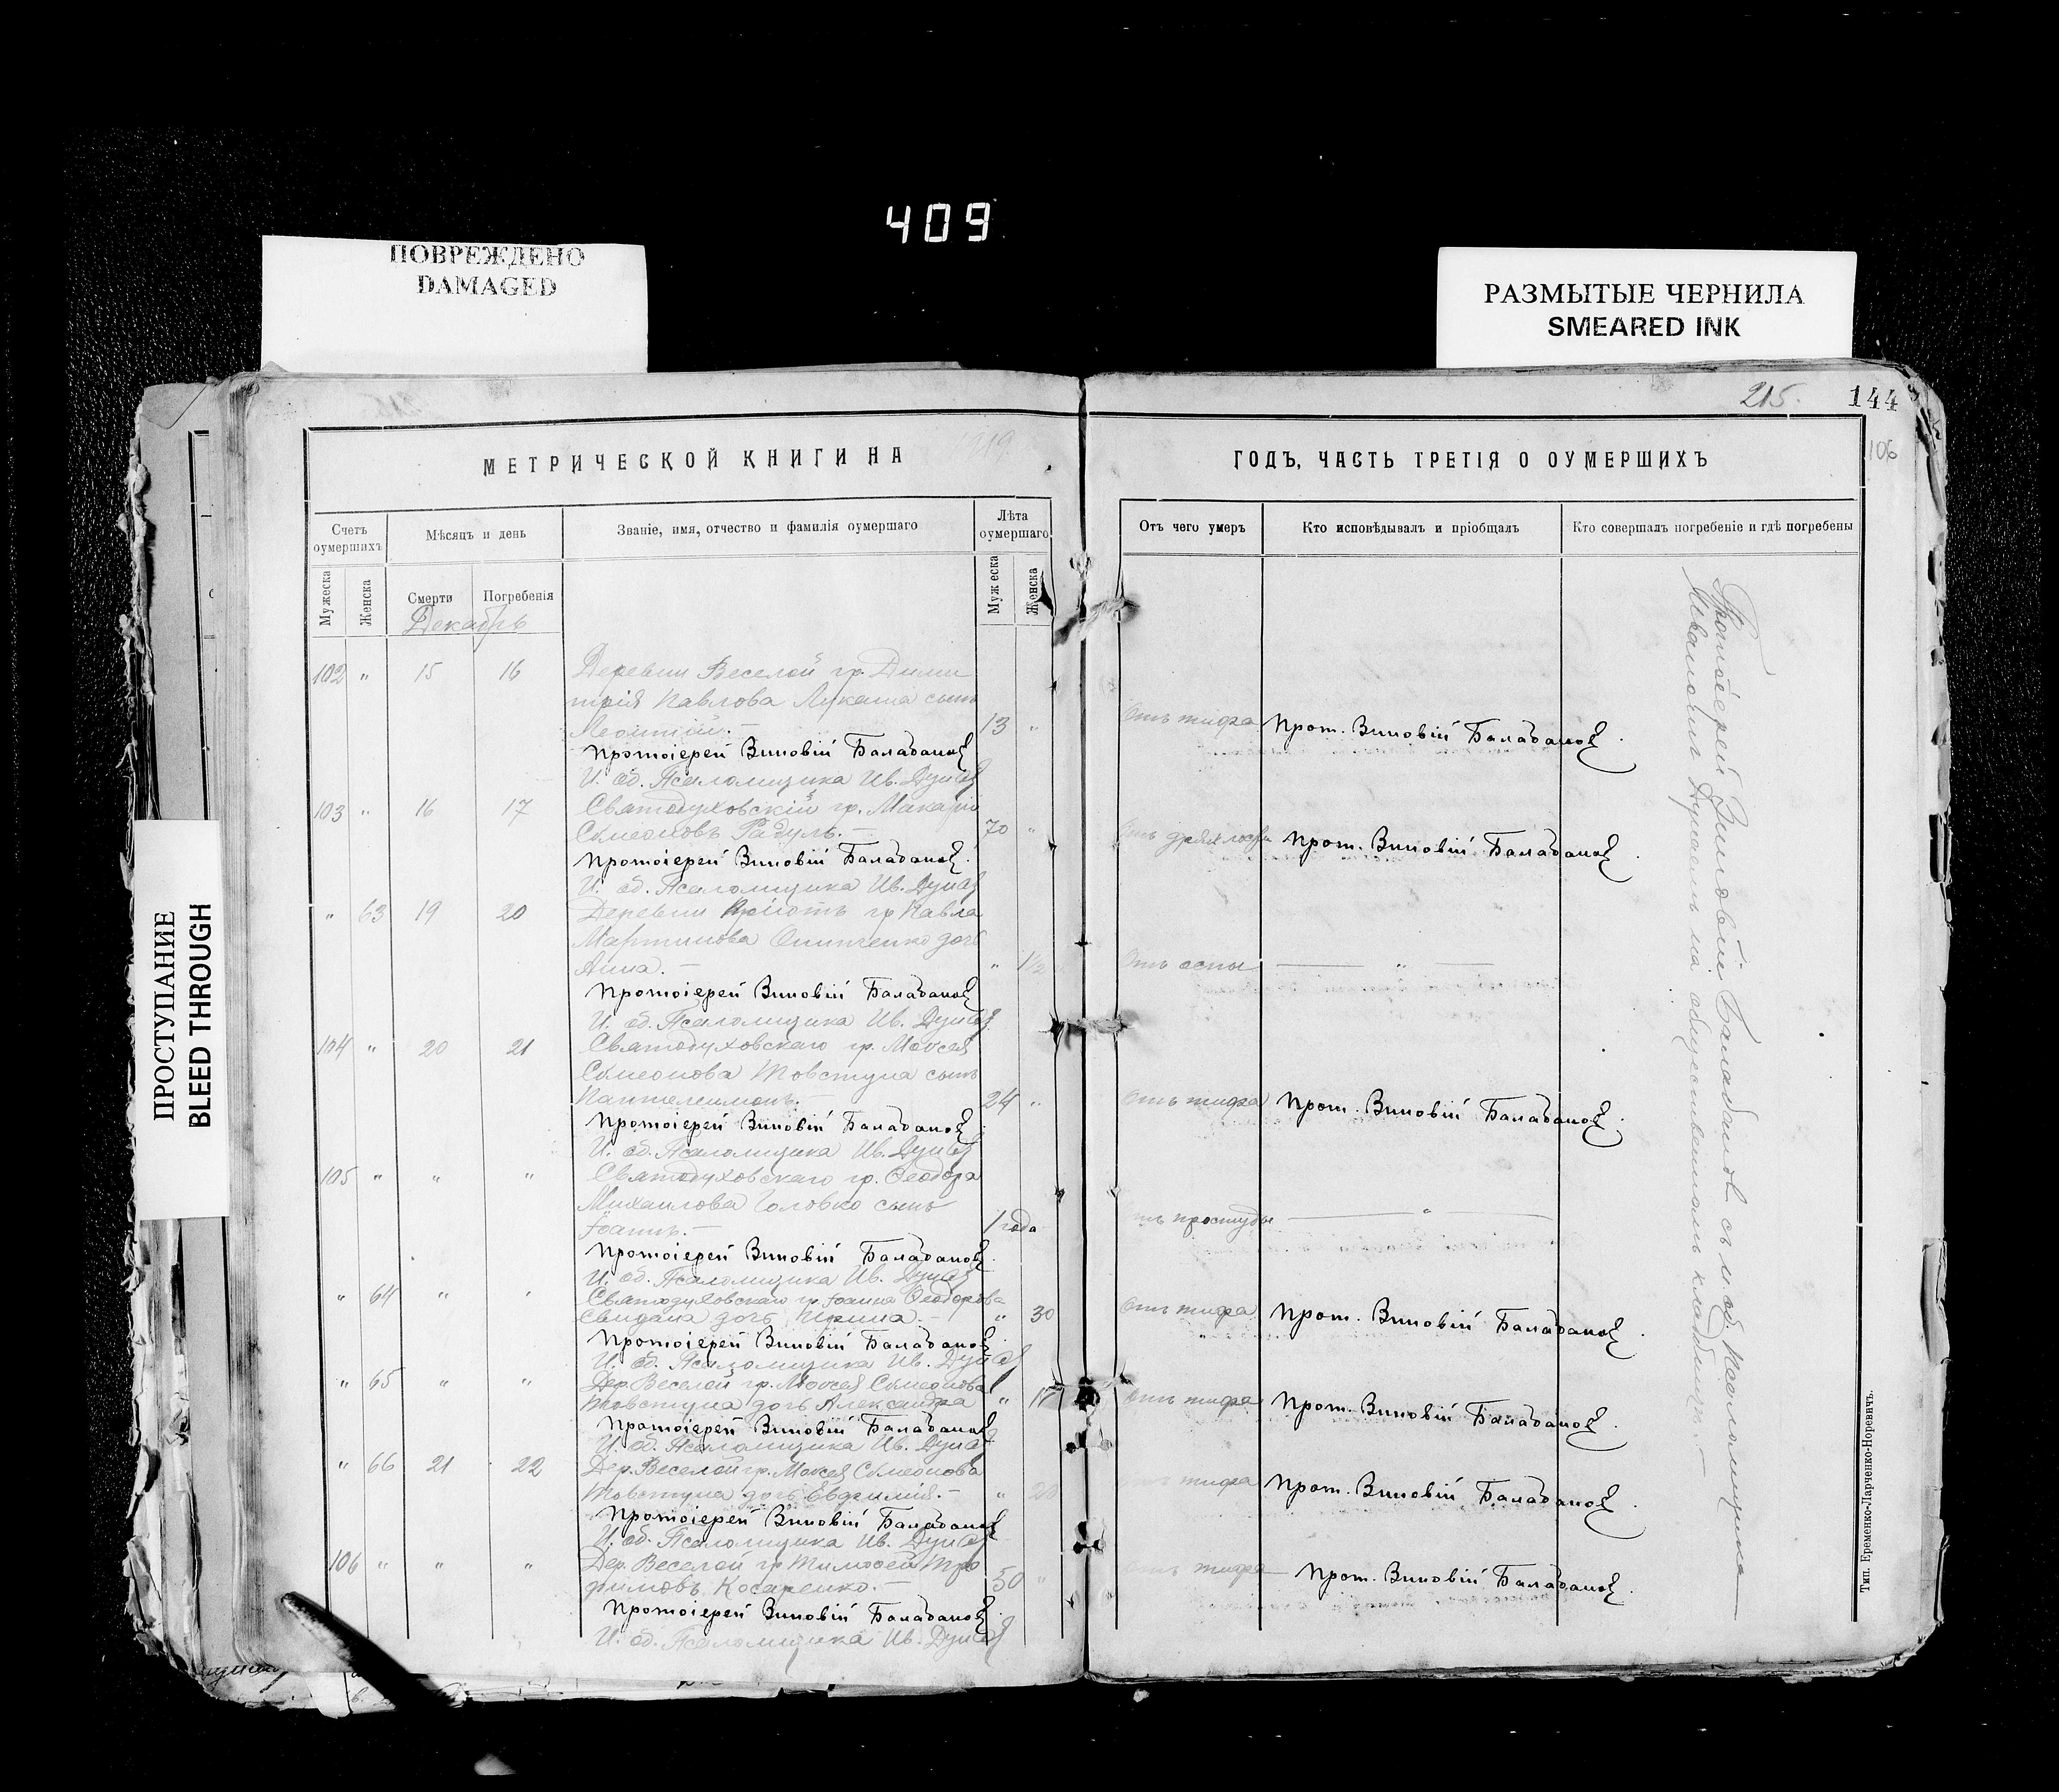 409
ПОВРЕЖДЕНО
DAMAGED
РАЗМЫТЫЕ ЧЕРНИЛА
SMEARED INK
ПРОСТУПАНИЕ
BLEED THROUGH
215.
144
106
МЕТРИЧЕСКОЙ КНИГИ НА 1919
ГОДЪ, ЧАСТЬ ТРЕТІЯ О ОУМЕРШИХЪ
Счетъ оумершихъ
Мѣсяцъ и день
Званіе, имя, отчество и фамилія оумершаго
Лѣта оумершаго
Отъ чего умеръ
Кто исповѣдывалъ и пріобщалъ
Кто совершалъ погребеніе и гдѣ погребены
Мужеска
Женска
Смерти
Погребенія
Мужеска
Женска
Декабрь
102 " 15 16 Деревни Веселой гр. Дими
трія Павлова Лукаша сынъ
Леонтій. — 13 " Отъ тифа Прот. Зиновій Балабановъ.
Протоіерей Зиновій Балабановъ
И. об. Псаломщика Ив.
103 " 16 17 Святодуховскій гр. Макарій
Симеоновъ Радуль. — 70 " Отъ дряхлости Прот. Зиновій Балабановъ.
Протоіерей Зиновій Балабановъ.
И. об. Псаломщика Ив.
" 63 19 20 Деревни гр. Павла
Мартинова дочь
Анна. — " 1½ Отъ оспы — " —
Протоіерей Зиновій Балабановъ
И. об. Псаломщика Ив.
104 " 20 21 Святодуховскаго гр. Моисея
Симеонова Товстуха сынъ
Пантелеимонъ. — 24 " Отъ тифа Прот. Зиновій Балабановъ.
Протоіерей Зиновій Балабановъ.
И. об. Псаломщика Ив.
105 " " " Святодуховскаго гр. Ѳеодора
Михаилова Головко сынъ
Іоаннъ. — 1 года Отъ простуды — " —
Протоіерей Зиновій Балабановъ.
И. об. Псаломщика Ив.
" 64 " " Святодуховскаго гр. Іоанна Ѳеодорова
дочь Ирина. — " 30 Отъ тифа Прот. Зиновій Балабановъ.
Протоіерей Зиновій Балабановъ.
И. об. Псаломщика Ив.
" 65 " " Дер. Веселой гр. Моисея Симеонова
Товстуха дочь Александра " 17 Отъ тифа Прот. Зиновій Балабановъ.
Протоіерей Зиновій Балабановъ
И. об. Псаломщика Ив.
" 66 21 22 Дер. Веселой гр. Моисея Симеонова
Товстуха дочь Евфимія. — " 20 Отъ тифа Прот. Зиновій Балабановъ.
Протоіерей Зиновій Балабановъ
И. об. Псаломщика Ив.
106 " " " Дер. Веселой гр. Тимофей Тро
фимовъ Косаренко. — 50 " Отъ тифа Прот. Зиновій Балабановъ.
Протоіерей Зиновій Балабановъ.
И. об. Псаломщика Ив.
Протоіерей Зиновій Балабановъ съ и. об. псаломщика
на общественномъ кладбищѣ. —
Тип. Еременко-Ларченко-Норевичъ.